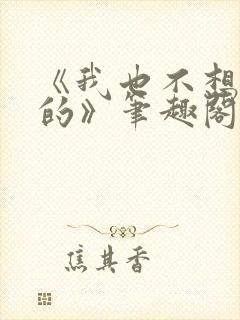 《我也不想
的》笔趣阁
焦其香